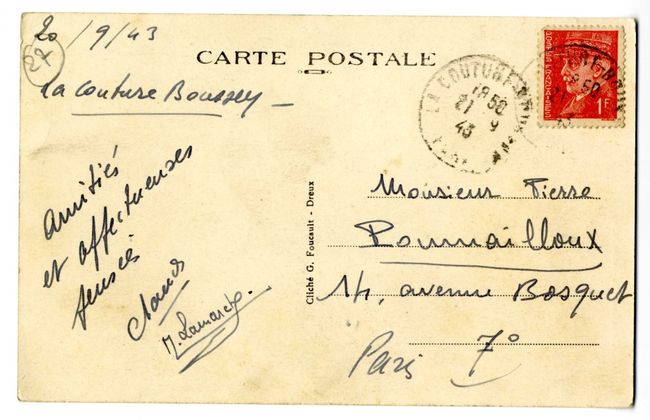 20/9/43
27
CARTE POSTALE
La Couture Boussey
LA COUTURE-BOUSSEY
18 50
21 9
43
1F
Amitiés
et affectueuses
pensées
Claude
M. Lamarche
Cliché G. Foucault - Dreux
Monsieur Pierre
Pommailloux
14, avenue Bosquet
Paris 7°